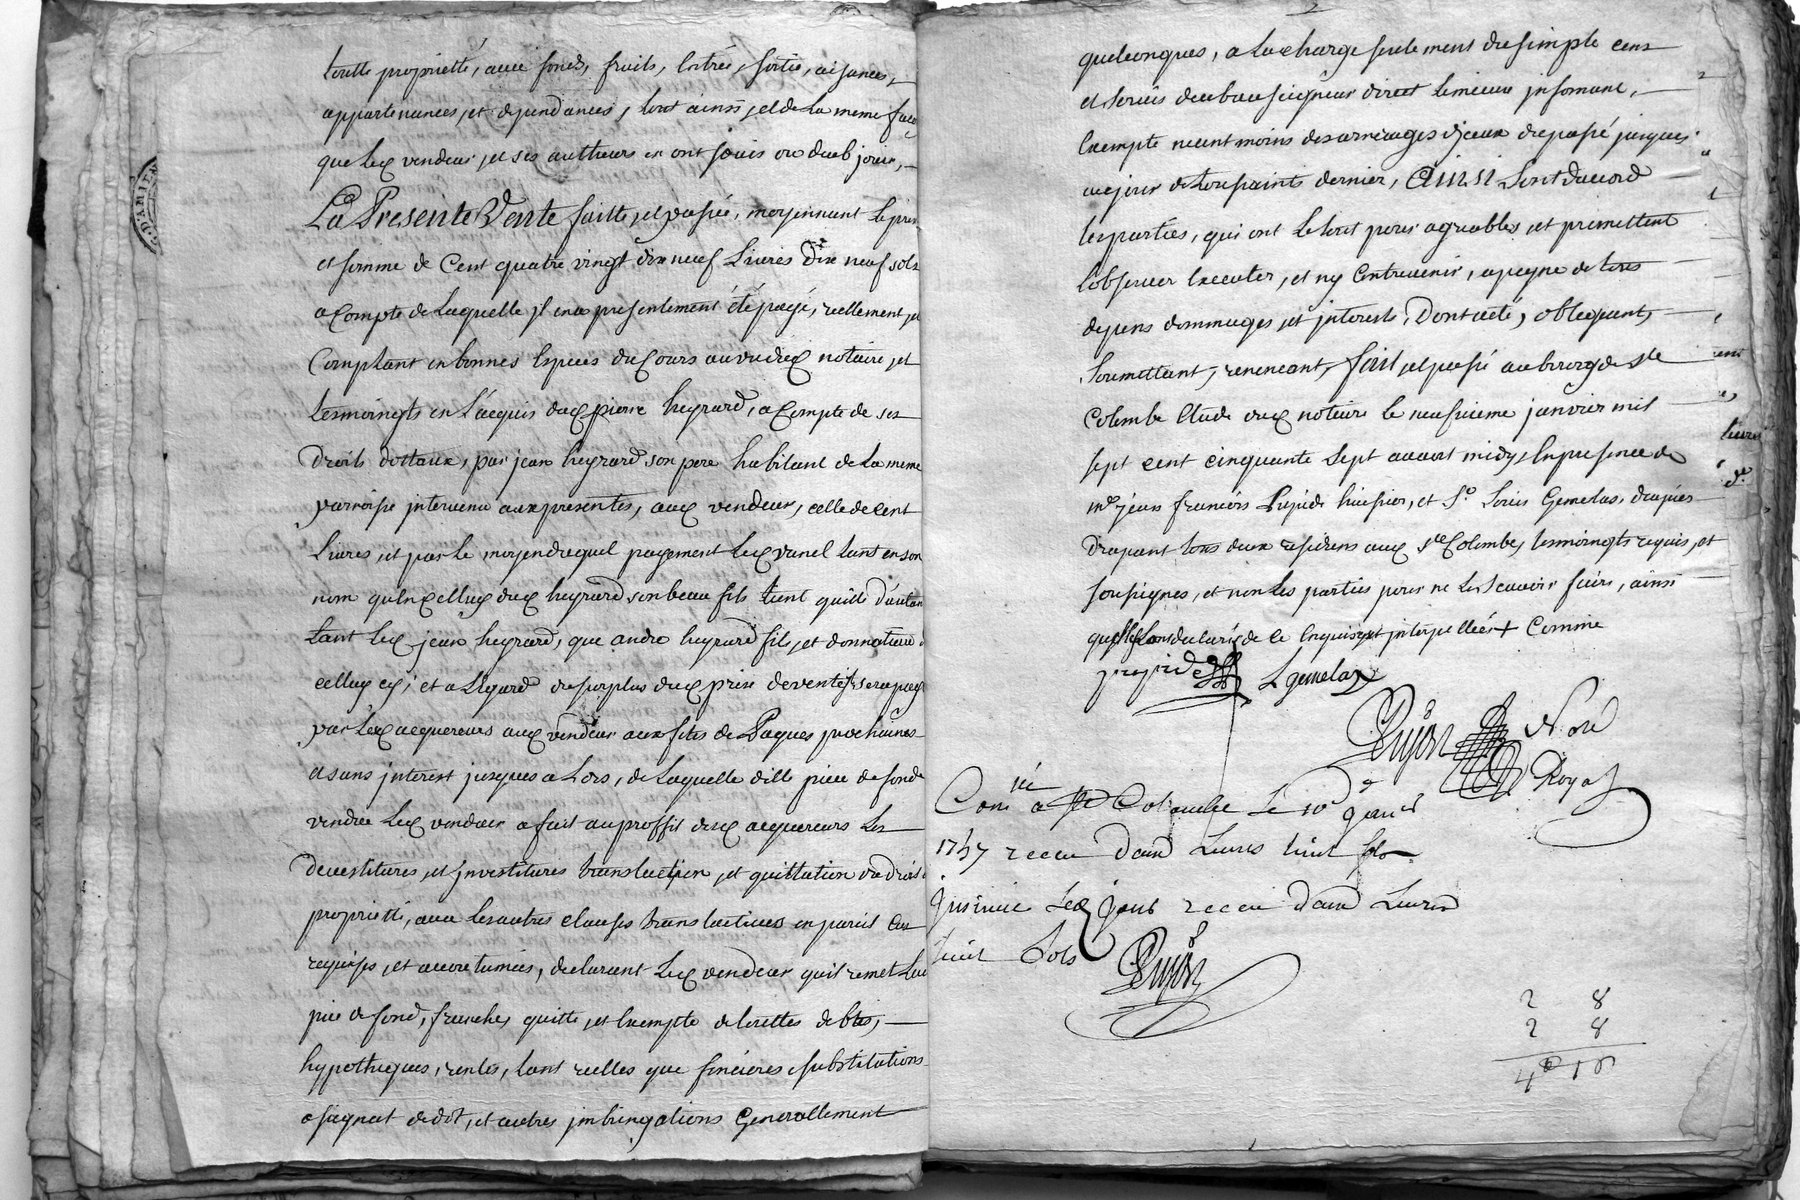 toutte proprieté, avec fonds, fruits, Entrée, sortie, aisances,
appartenances, et dependances, tout ainsi, et de la meme faco
que Led vendeur, et ses autheurs en ont jouis ou deub jouir,
La Presente Vente faitte, et passée, moyennant le prix
et somme de Cent quatre vingt dix neuf Livres dix neuf sols
a Compte de Laquelle il en a presentement été payé, reellement, et
Comptant en bonnes Especes du Cours au vu dud notaire, et
tesmoingts en L'acquis dud pierre heyrard, a Compte de ses
droits dottaux, par jean heyrard son pere habitant de la meme
parroisse intervenu aux presentes, aud vendeur, celle de cent
Livres, et par le moyen duquel payement Led vanel tant en son
nom qu'en celluy dud heyrard son beau fils tient quitte d'autan
tant led jean heyrard, que andré heyrard fils, et donnataire d
celluy cy; et a Legard du surplus dud prix de vente sera payé
par Led acquereurs aud vendeur aux fetes de Paques prochaines
et sans interest jusques a Lors, de Laquelle ditte piece de fonds
vendue Led vendeur a fait au proffit dud acquereurs Les
devestitures, et investitures translaction, et quittation du droit
proprietté, avec les autres clauses translatives en pareil cas
requises, et accoutumées, declarant Led vendeur quil remet lad
piece de fond, franche, quitte, et Exempte de touttes debtes,
hypotheques, rentes, tant reelles que foncieres substitutions
assignat de dot, et autres imbringations Generallement
quelconques, a La charge seulement du simple cens
et servis deub au seigneur direct Lemeure informant,
Exempte neantmoins des arrerages d'iceux du passé jusques
au jour de toussaints dernier, Ainsi sont d'accord
les parties, qui ont le tout pour agreable, et promettent
l'observer Executer, et n'y Contrevenir, a peyne de tous
depens dommages, et interests, Dont acte, obligeant,
soumettant, renoncant, fait, et passé au bourg de Ste
Colombe Etude dud notaire le neufvieme janvier mil
sept cent cinquante sept avant midy, En presence de
me jean francois Pupide huissier, et Sr Louis Gemelas, drapier
drapant tous deux residens aud Ste Colombe, tesmoingts requis, et
sousignes, et non Les parties pour ne le scavoir faire, ainsi
quelles ont declaré de ce Enquises et interpellées + Comme
L gemelas
Pujon Nore
Royal
Conlé a Ste Colombe le 10e janer
1757 receu deux Livres huit sols
Insinué Led jour receu deux Livres
huit sols
Pujon
2 8
2 8
4 16